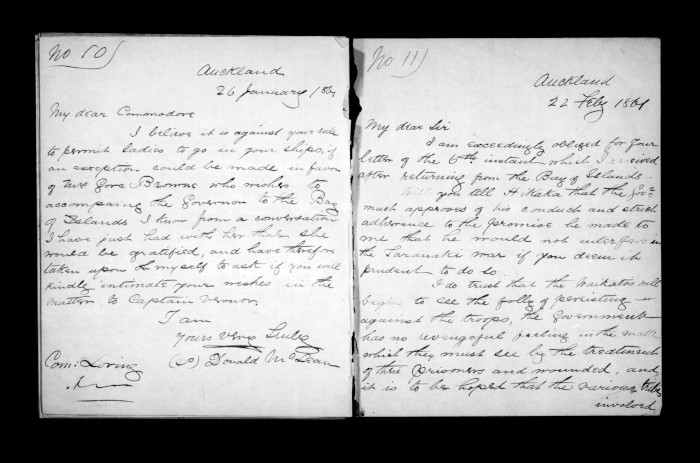 No 10)
Auckland
26 January 1861
My dear Commodore
I believe it is against your rule
to permit ladies to go in your ships, if
an exception could be made in favor
of Mrs Gore Browne who wishes to
accompany the Governor to the Bay
of Islands I know from a conversation
I have just had with her that she
would be gratified, and have therefore
taken upon myself to ask if you will
kindly intimate your wishes in the
matter to Captain Vernon.
I am
Yours very truly
(sd) Donald McLean
Com: Loring
No 11)
Auckland
22 Feby 1861
My dear Sir
I am exceedingly obliged for your
letter of the 5th instant which I received
after returning from the Bay of Islands
you all Hikaka that the Gov
much approves of his conduct and strict
adherence to the promise he made to
me that he would not interfere in
the Taranaki war if you deem it
prudent to do so.
I do trust that the Waikatos will
begin to see the folly of persisting
against the troops, the Government
has no revengeful feeling in the matter
which they must see by the treatment
of their prisoners and wounded, and
it is to be hoped that the various tribes
involved